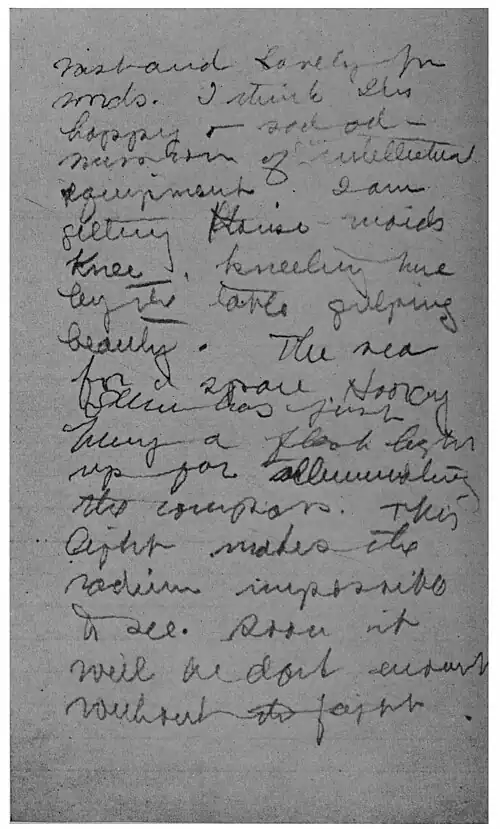 vast and lovely for
words. I think I'm
happy – sad ad-
mission of intellectual
equipment. I am
getting House-maids
Knee, kneeling here
by the table gulping
beauty. The sea
for a space. Hooray
has just
hung a flash light
up for illuminating
the compass. This
light makes the
radium impossible
to see. Soon it
will be dark enough
without